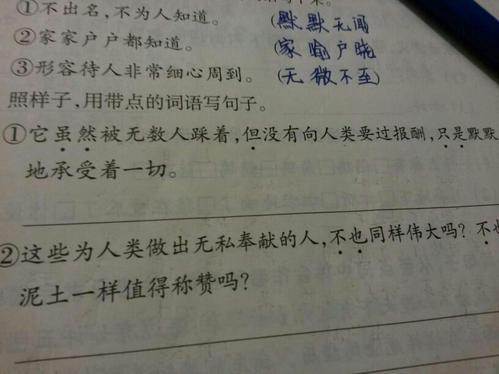 ①不出名,不为人知道。 (默默无闻)
②家家户户都知道。 (家喻户晓)
③形容待人非常细心周到。 (无微不至)
照样子,用带点的词语写句子。
①它虽然被无数人踩着,但没有向人类要过报酬,只是默默
地承受着一切。
②这些为人类做出无私奉献的人,不也同样伟大吗?不也
泥土一样值得称赞吗?